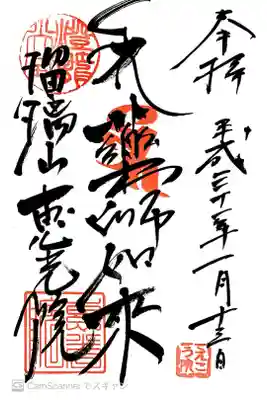 奉拝 平成三十年一月十三日
薬師如来
瑠璃山 恵光院
CamScanner でスキャン